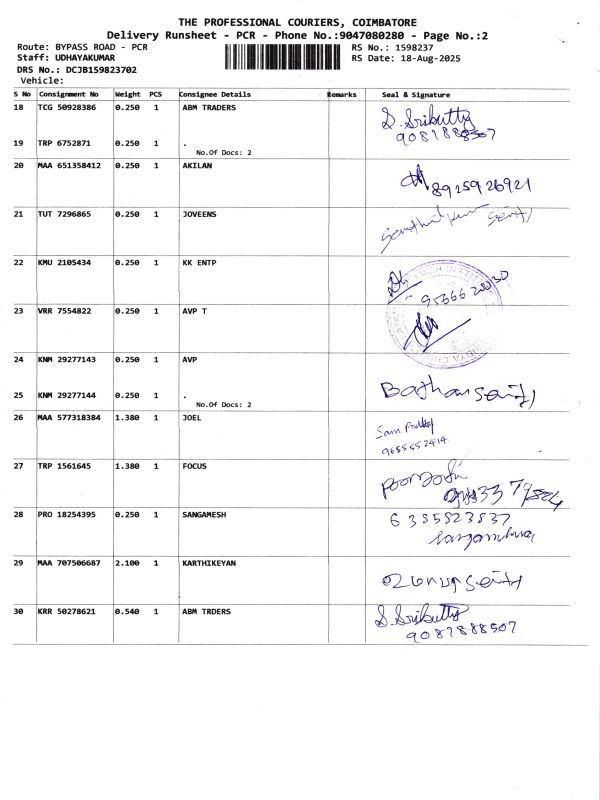 THE PROFESSIONAL COURIERS, COIMBATORE
Delivery Runsheet - PCR - Phone No.:9047080280 - Page No.:2
Route: BYPASS ROAD - PCR RS No.: 1598237
Staff: UDHAYAKUMAR RS Date: 18-Aug-2025
DRS No.: DCJB159823702
Vehicle:
S No Consignment No Weight PCS Consignee Details Remarks Seal & Signature
18 TCG 50928386 0.250 1 ABM TRADERS S. Sributty
9087888507
19 TRP 6752871 0.250 1 .
No.Of Docs: 2
20 MAA 651358412 0.250 1 AKILAN 8925926921
21 TUT 7296865 0.250 1 JOVEENS
22 KMU 2105434 0.250 1 KK ENTP
23 VRR 7554822 0.250 1 AVP T
24 KNM 29277143 0.250 1 AVP
25 KNM 29277144 0.250 1 .
No.Of Docs: 2
26 MAA 577318384 1.380 1 JOEL
9655552414
27 TRP 1561645 1.380 1 FOCUS
28 PRO 18254395 0.250 1 SANGAMESH 6385823837
29 MAA 707506687 2.100 1 KARTHIKEYAN
30 KRR 50278621 0.540 1 ABM TRDERS S. Sributty
9087888507